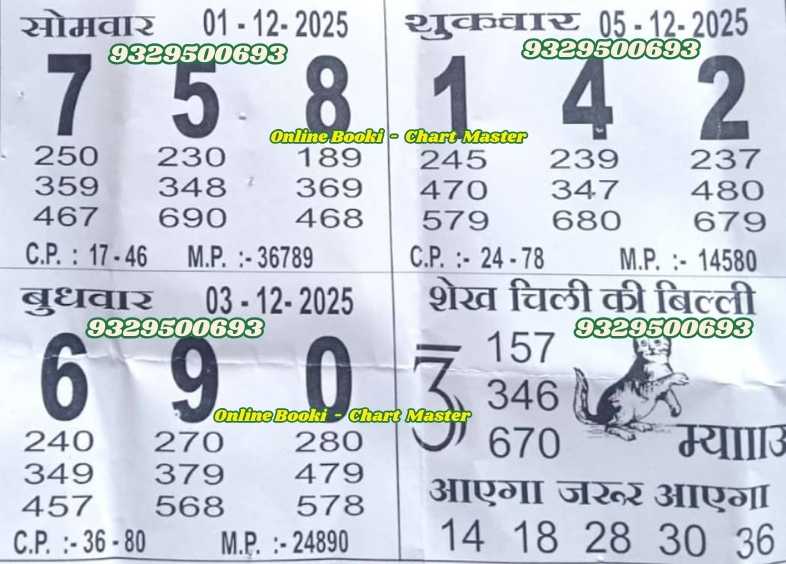 सोमवार 01-12-2025
9329500693
7 5 8
250 230 189
359 348 369
467 690 468
C.P. : 17-46 M.P. :- 36789
शुक्रवार 05-12-2025
9329500693
1 4 2
Online Booki - Chart Master
245 239 237
470 347 480
579 680 679
C.P. :- 24-78 M.P. :- 14580
बुधवार 03-12-2025
9329500693
6 9 0
Online Booki - Chart Master
240 270 280
349 379 479
457 568 578
C.P. :- 36-80 M.P. :- 24890
शेख चिली की बिल्ली
9329500693
157
346
670
आएगा जरूर आएगा
14 18 28 30 36